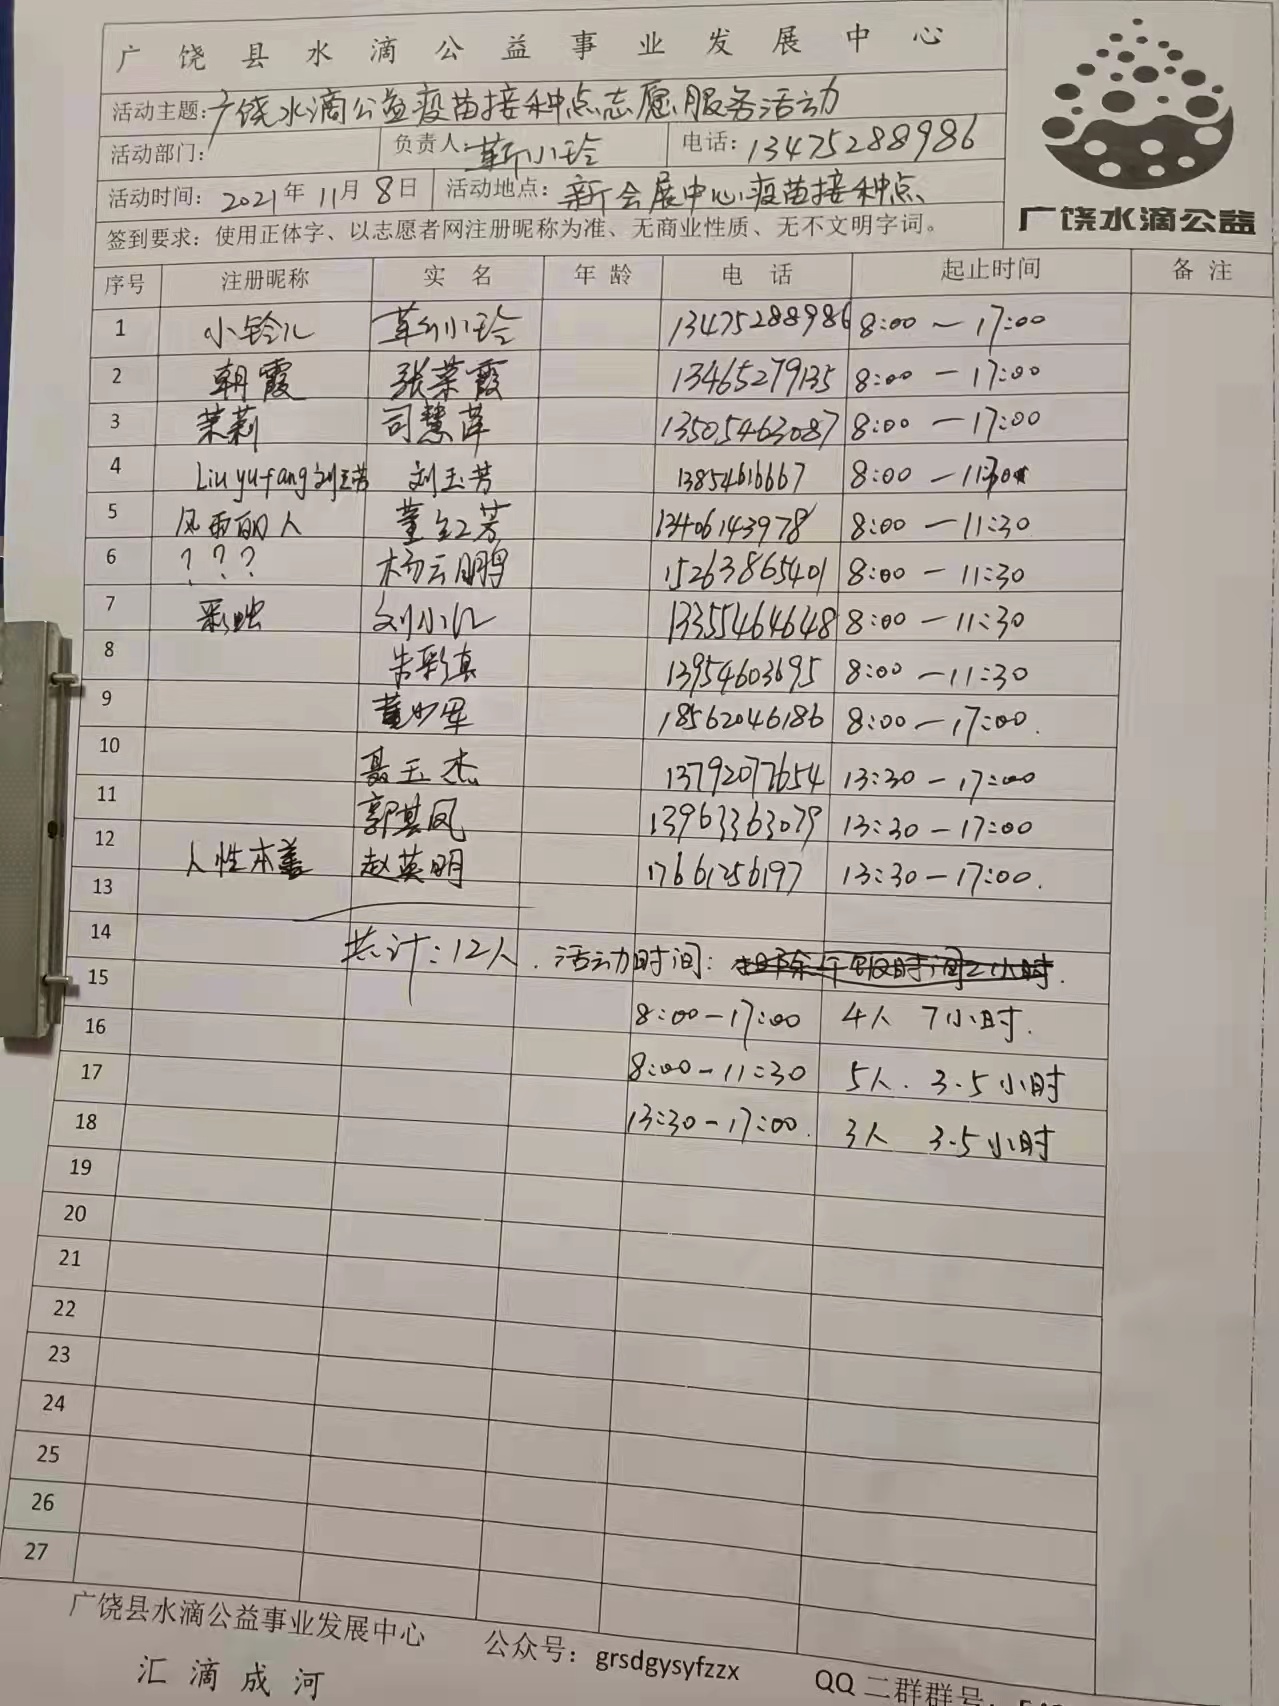 广饶县水滴公益事业发展中心
活动主题:广饶水滴公益疫苗接种点志愿服务活动
活动部门: 负责人:靳小玲 电话:13475288986
活动时间: 2021年11月8日 活动地点:新会展中心疫苗接种点
签到要求:使用正体字、以志愿者网注册昵称为准、无商业性质、无不文明字词。
广饶水滴公益
序号 注册昵称 实名 年龄 电话 起止时间 备注
1 小铃儿 靳小玲 13475288986 8:00—17:00
2 朝霞 张荣霞 13465279135 8:00—17:00
3 茉莉 司慧萍 13505463087 8:00—17:00
4 Liu yu-fang刘玉芳 刘玉芳 13854616667 8:00—11:30
5 风雨的人 董红芳 13406143978 8:00—11:30
6 ??? 杨云鹏 15263865401 8:00—11:30
7 彩虹 刘小江 13355464648 8:00—11:30
8 朱彩真 13954603695 8:00—11:30
9 董少军 18562046186 8:00—17:00.
10 聂玉杰 13792077654 13:30—17:00
11 郭其凤 13963363079 13:30—17:00
12 人性本善 赵英明 17661256197 13:30—17:00.
13
14
共计:12人. 活动时间:
15
16 8:00—17:00 4人 7小时.
17 8:00—11:30 5人. 3.5小时
18 13:30—17:00. 3人 3.5小时
19
20
21
22
23
24
25
26
27
广饶县水滴公益事业发展中心 公众号:grsdgysyfzzx QQ二群群号:
汇滴成河